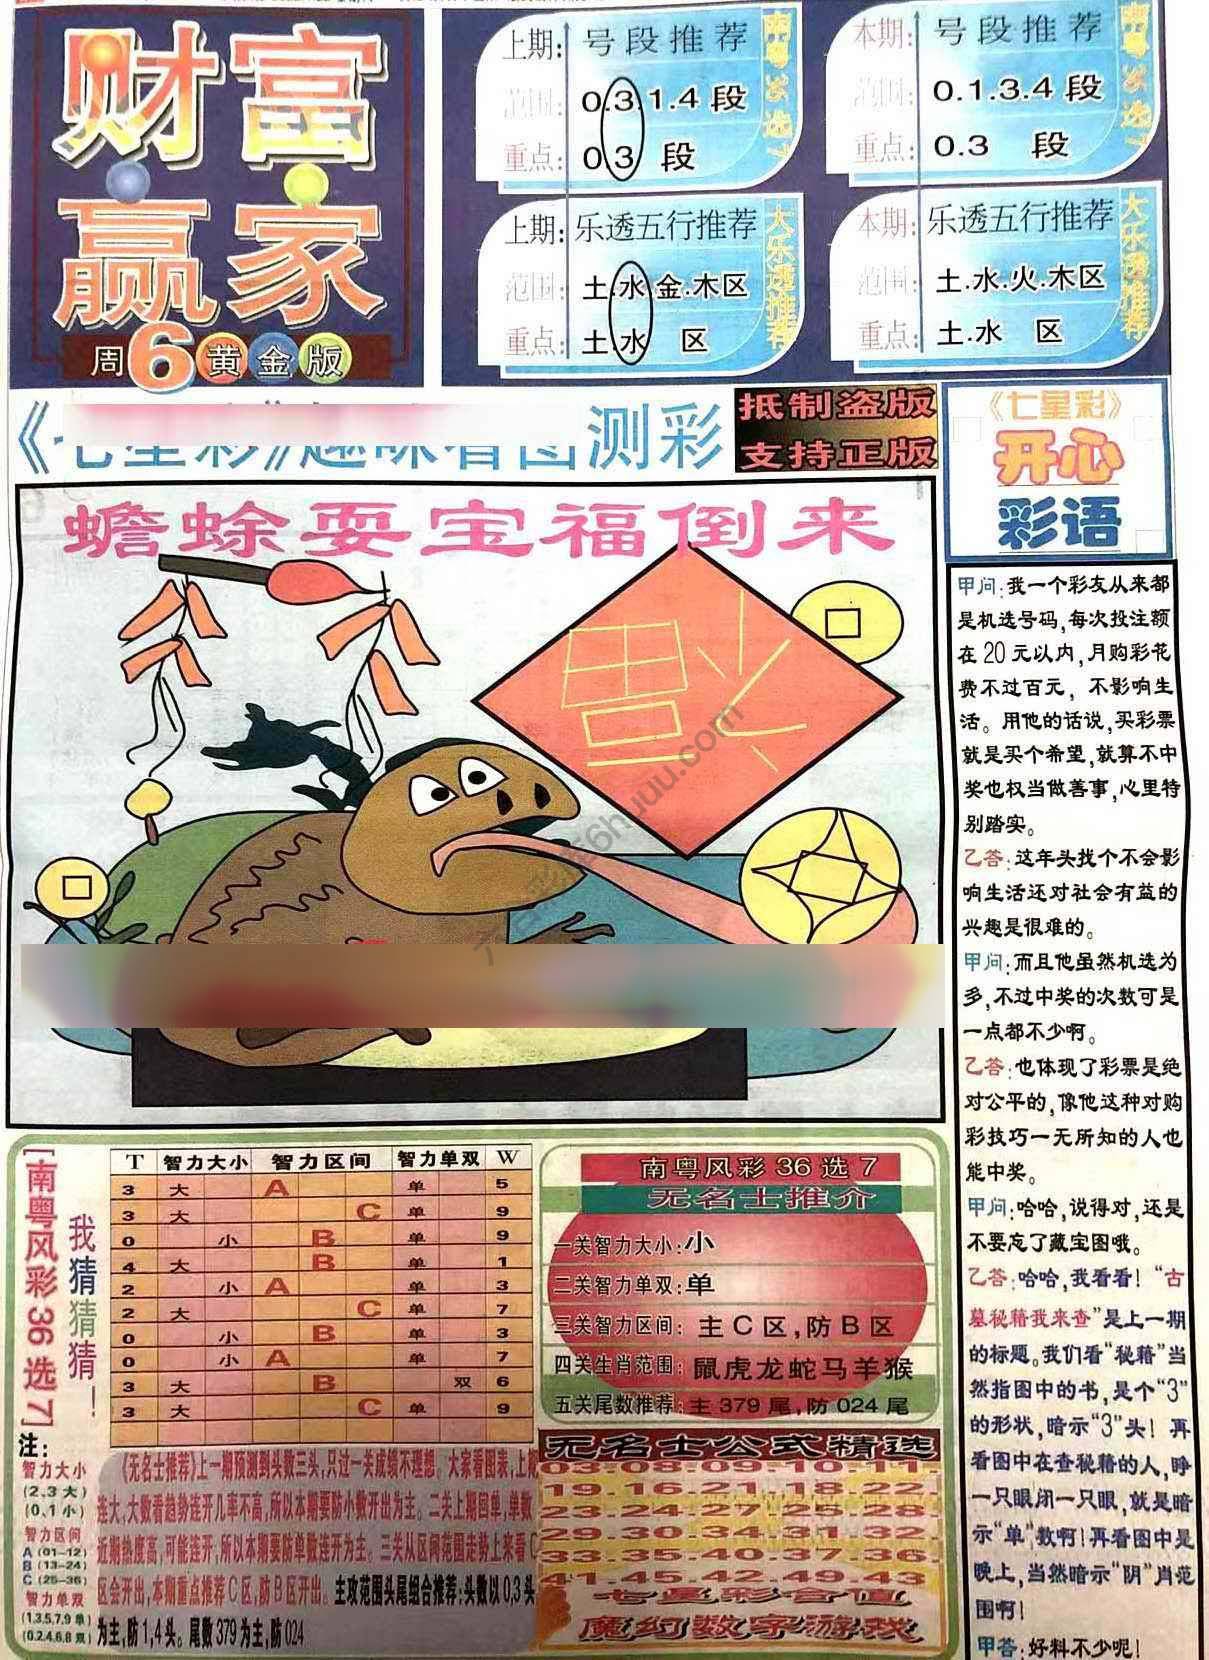 财富
赢家
周6黄金版
上期: 号段推荐
范围: 0.3.1.4段
重点: 0.3 段
南粤36选7
本期: 号段推荐
范围: 0.1.3.4段
重点: 0.3 段
南粤36选7
上期: 乐透五行推荐
范围: 土.水.金.木区
重点: 土.水 区
大乐透推荐
本期: 乐透五行推荐
范围: 土.水.火.木区
重点: 土.水 区
大乐透推荐
《七星彩》趣味看图测彩
抵制盗版
支持正版
《七星彩》
开心
彩语
蟾蜍耍宝福倒来
福
甲问:我一个彩友从来都
是机选号码,每次投注额
在20元以内,月购彩花
费不过百元,不影响生
活。用他的话说,买彩票
就是买个希望,就算不中
奖也权当做善事,心里特
别踏实。
乙答:这年头找个不会影
响生活还对社会有益的
兴趣是很难的。
甲问:而且他虽然机选为
多,不过中奖的次数可是
一点都不少啊。
乙答:也体现了彩票是绝
对公平的,像他这种对购
彩技巧一无所知的人也
能中奖。
甲问:哈哈,说得对,还是
不要忘了藏宝图哦。
乙答:哈哈,我看看!“古
墓秘籍我来查”是上一期
的标题。我们看“秘籍”当
然指图中的书,是个“3”
的形状,暗示“3”头!再
看图中在查秘籍的人,睁
一只眼闭一只眼,就是暗
示“单”数啊!再看图中是
晚上,当然暗示“阴”肖范
围啊!
甲答:好料不少呢!
[南粤风彩36选7]
我猜猜猜!
T 智力大小 智力区间 智力单双 W
3 大 A 单 5
3 大 C 单 9
0 小 B 单 9
4 大 B 单 1
2 小 A 单 3
2 大 C 单 7
0 小 B 单 3
0 小 A 单 7
3 大 B 双 6
3 大 C 单 9
注:
智力大小
(2.3大)
(0.1小)
智力区间
A (01-12)
B (13-24)
C (25-36)
智力单双
(1.3.5.7.9单)
(0.2.4.6.8双)
《无名士推荐》上一期预测到头数三头,只过一关成绩不理想。大家看图表,上期
连大,大数看趋势连开几率不高,所以本期要防小数开出为主。二关上期回单,单数
近期热度高,可能连开,所以本期要防单数连开为主。三关从区间范围走势上来看C
区会开出,本期重点推荐C区,防B区开出。主攻范围头尾组合推荐:头数以0.3头
为主,防1,4头。尾数379为主,防024
南粤风彩36选7
无名士推介
一关智力大小:小
二关智力单双:单
三关智力区间:主C区,防B区
四关生肖范围:鼠虎龙蛇马羊猴
五关尾数推荐:主379尾,防024尾
无名士公式精选
03.08.09.10.11.
19.16.21.18.22.
23.24.27.25.28
29.30.34.31.32
33.35.40.37.36
41.45.42.43.49
七星彩合值
魔幻数字游戏